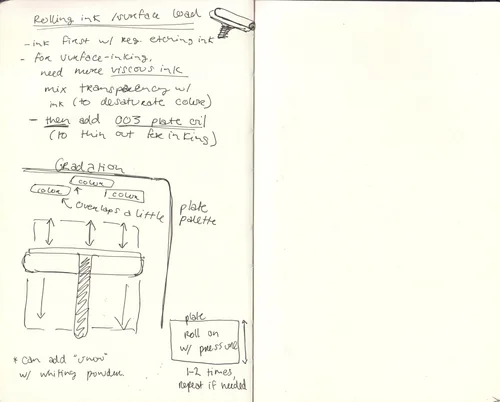 Rolling ink / surface load
- ink first w/ reg etching ink
- for surface-inking,
need more viscous ink
mix transparency w/
ink (to desaturate color)
- then add 003 plate oil
(to thin out for inking)
Gradation
color
color
color
overlaps a little
plate
palette
plate
Roll on
w/ pressure
1-2 times,
repeat if needed
* can add "snow"
w/ whiting powder